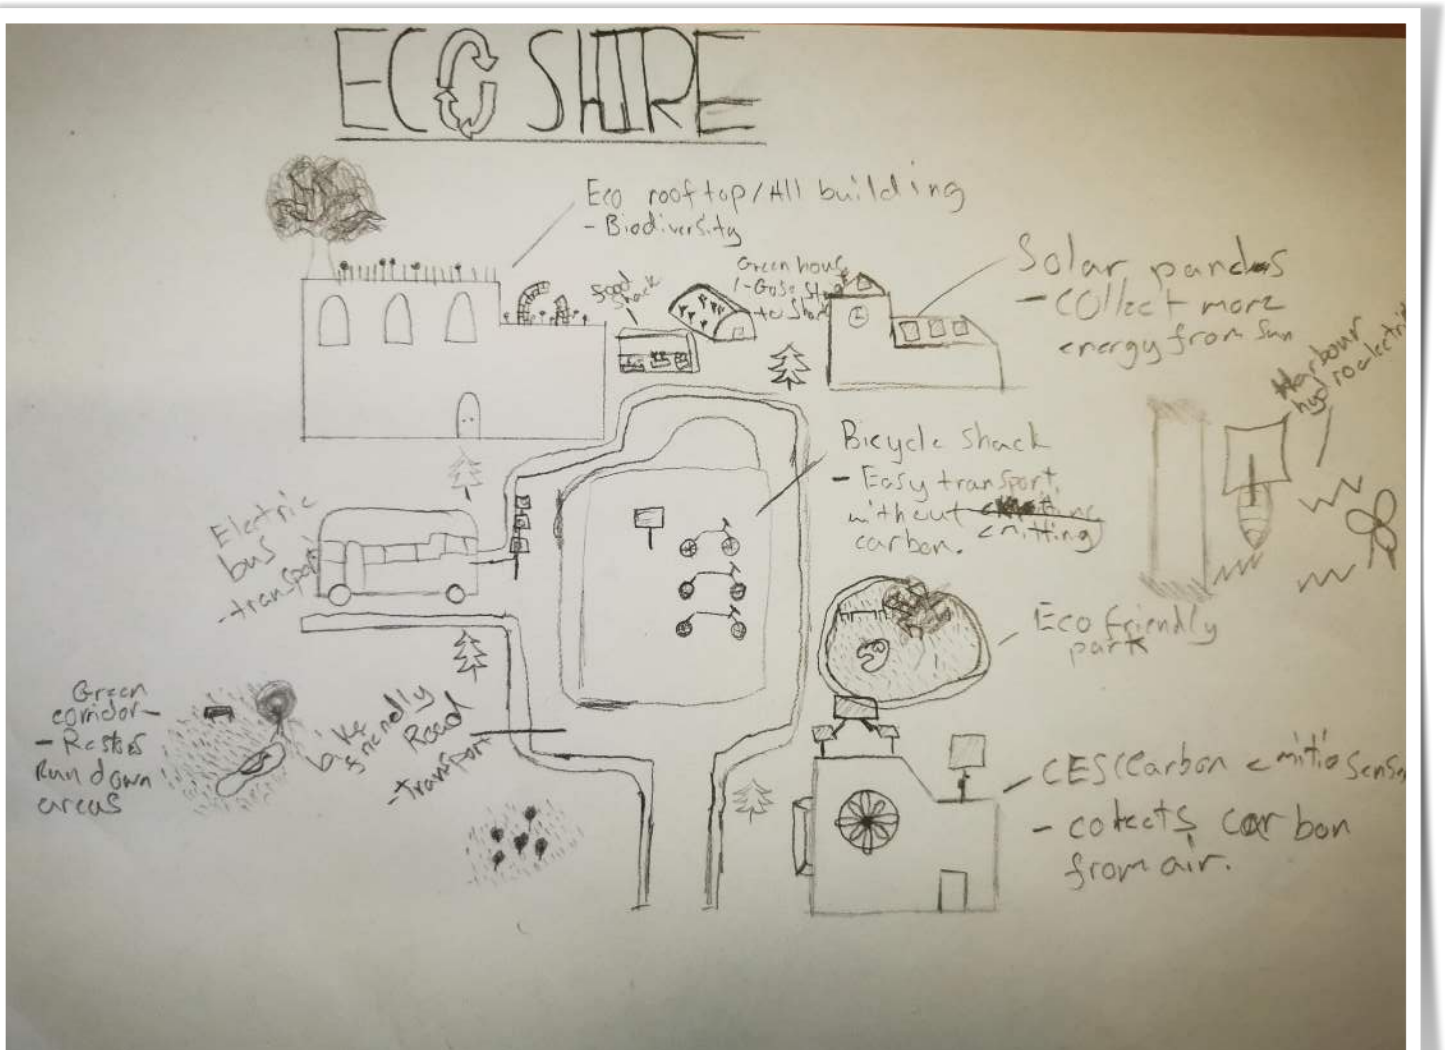 ECO SHIRE
Eco rooftop/All building
- Biodiversity
Food
shack
Green house
Solar pandas
- Collect more
energy from sun
Harbour
hydroelectric
Bicycle shack
- Easy transport
without
carbon. emitting
Electric
bus
-transport
Eco friendly
park
Green
corridor-
- Restores
Run down
areas
bike
friendly
Road
-transport
CES(Carbon emitio Senso
- collects carbon
from air.